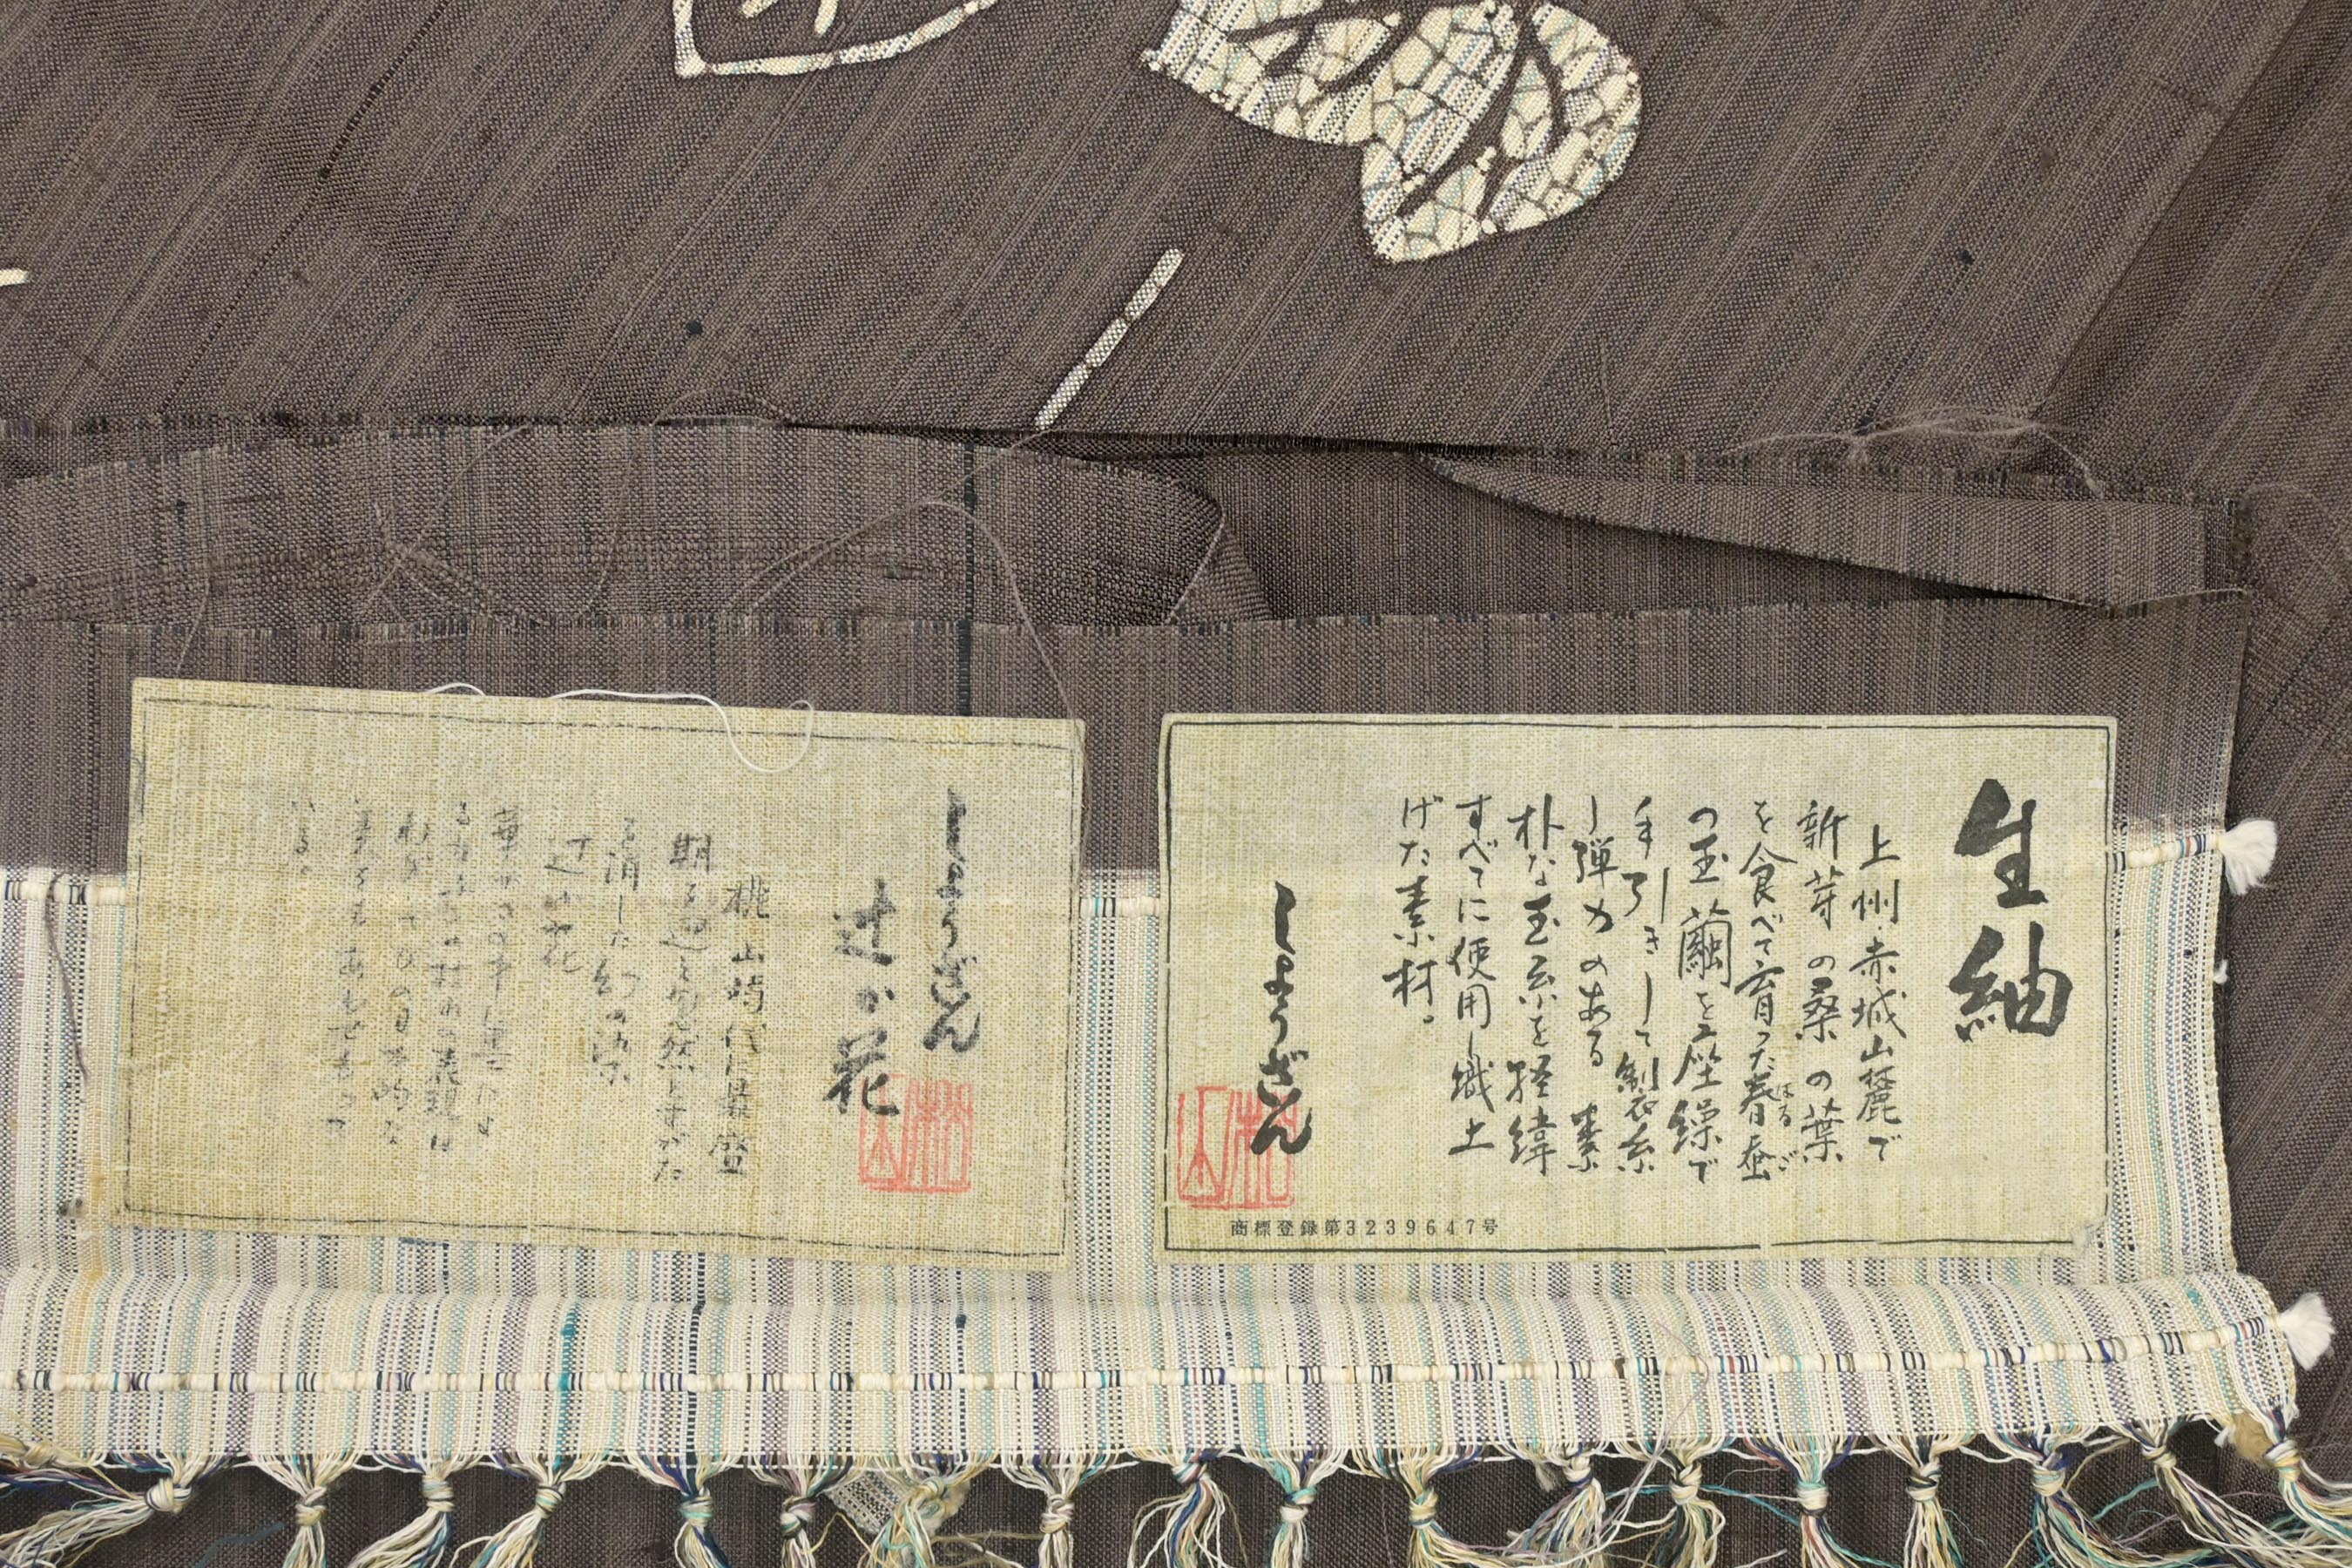 生紬
上州・赤城山麓で
新芽の桑の葉
を食べて育った春蚕
はるご
の玉繭を座繰で
手引きして製糸
し弾力のある素
朴な玉糸を経緯
すべてに使用し織上
げた素材。
しょうざん
松山
商標登録第3239647号
しょうざん
辻が花
松山
桃山時代に最盛
期を迎え忽然とすがた
を消した幻の染
辻が花
華やかさの中に墨によ
表現は
わびさびの日本的な
美をもあわせもって
いる。